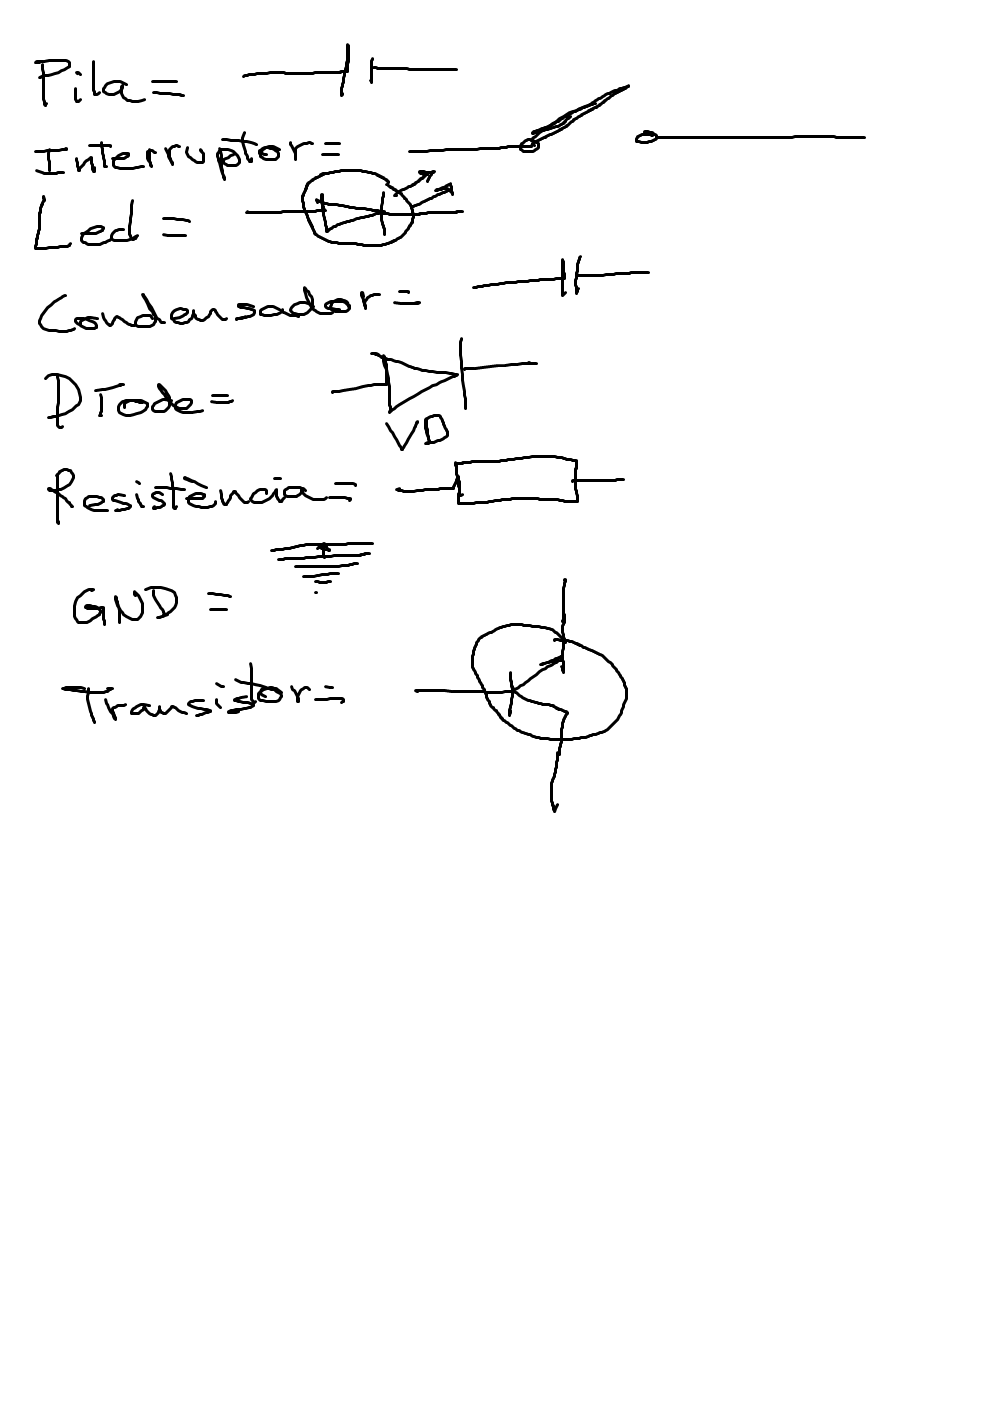 Pila =
Interruptor =
Led =
Condensador =
Díode =
VD
Resistència =
GND =
Transistor =